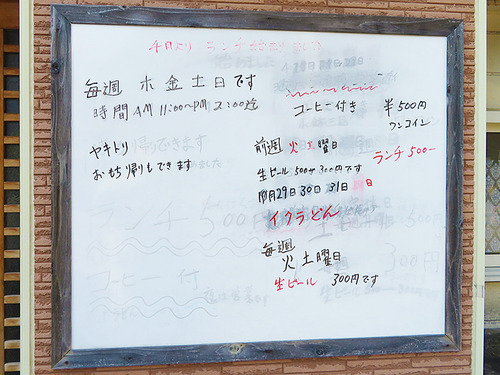 4日より ランチ
毎週 木金土日です
時間 AM 11:00〜PM 2:00迄
コーヒー付き
半500円
ワンコイン
ヤキトリ
おもち帰りもできます
前週 火土曜日
ランチ500-
生ビール 500が300円です
月29日30日31日
イクラどん
毎週
火土曜日
生ビール 300円です